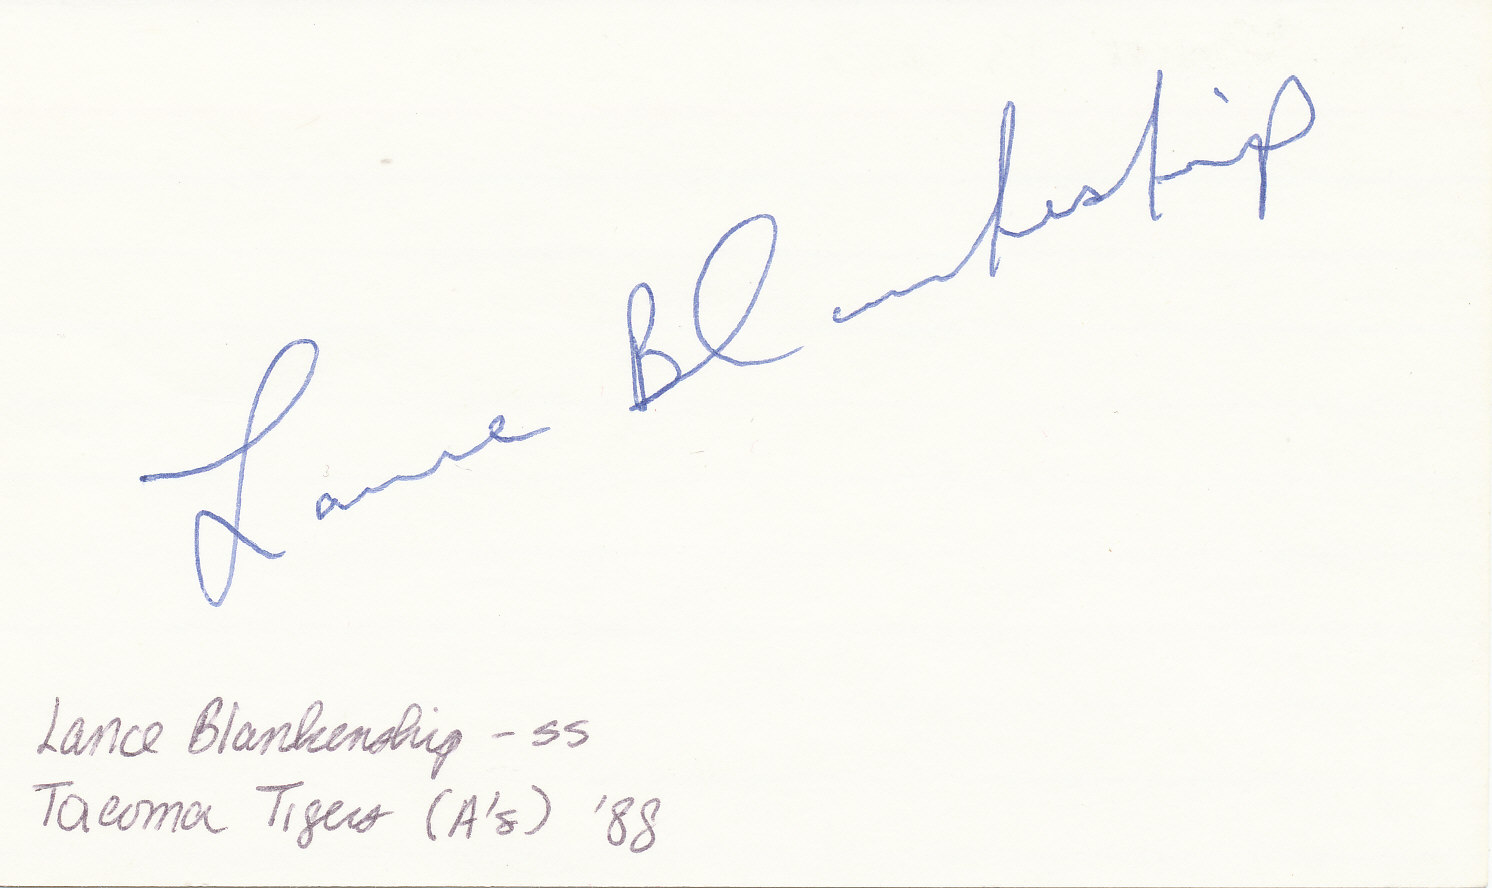 Lance Blankenship
Lance Blankenship - SS
Tacoma Tigers (A's) '88